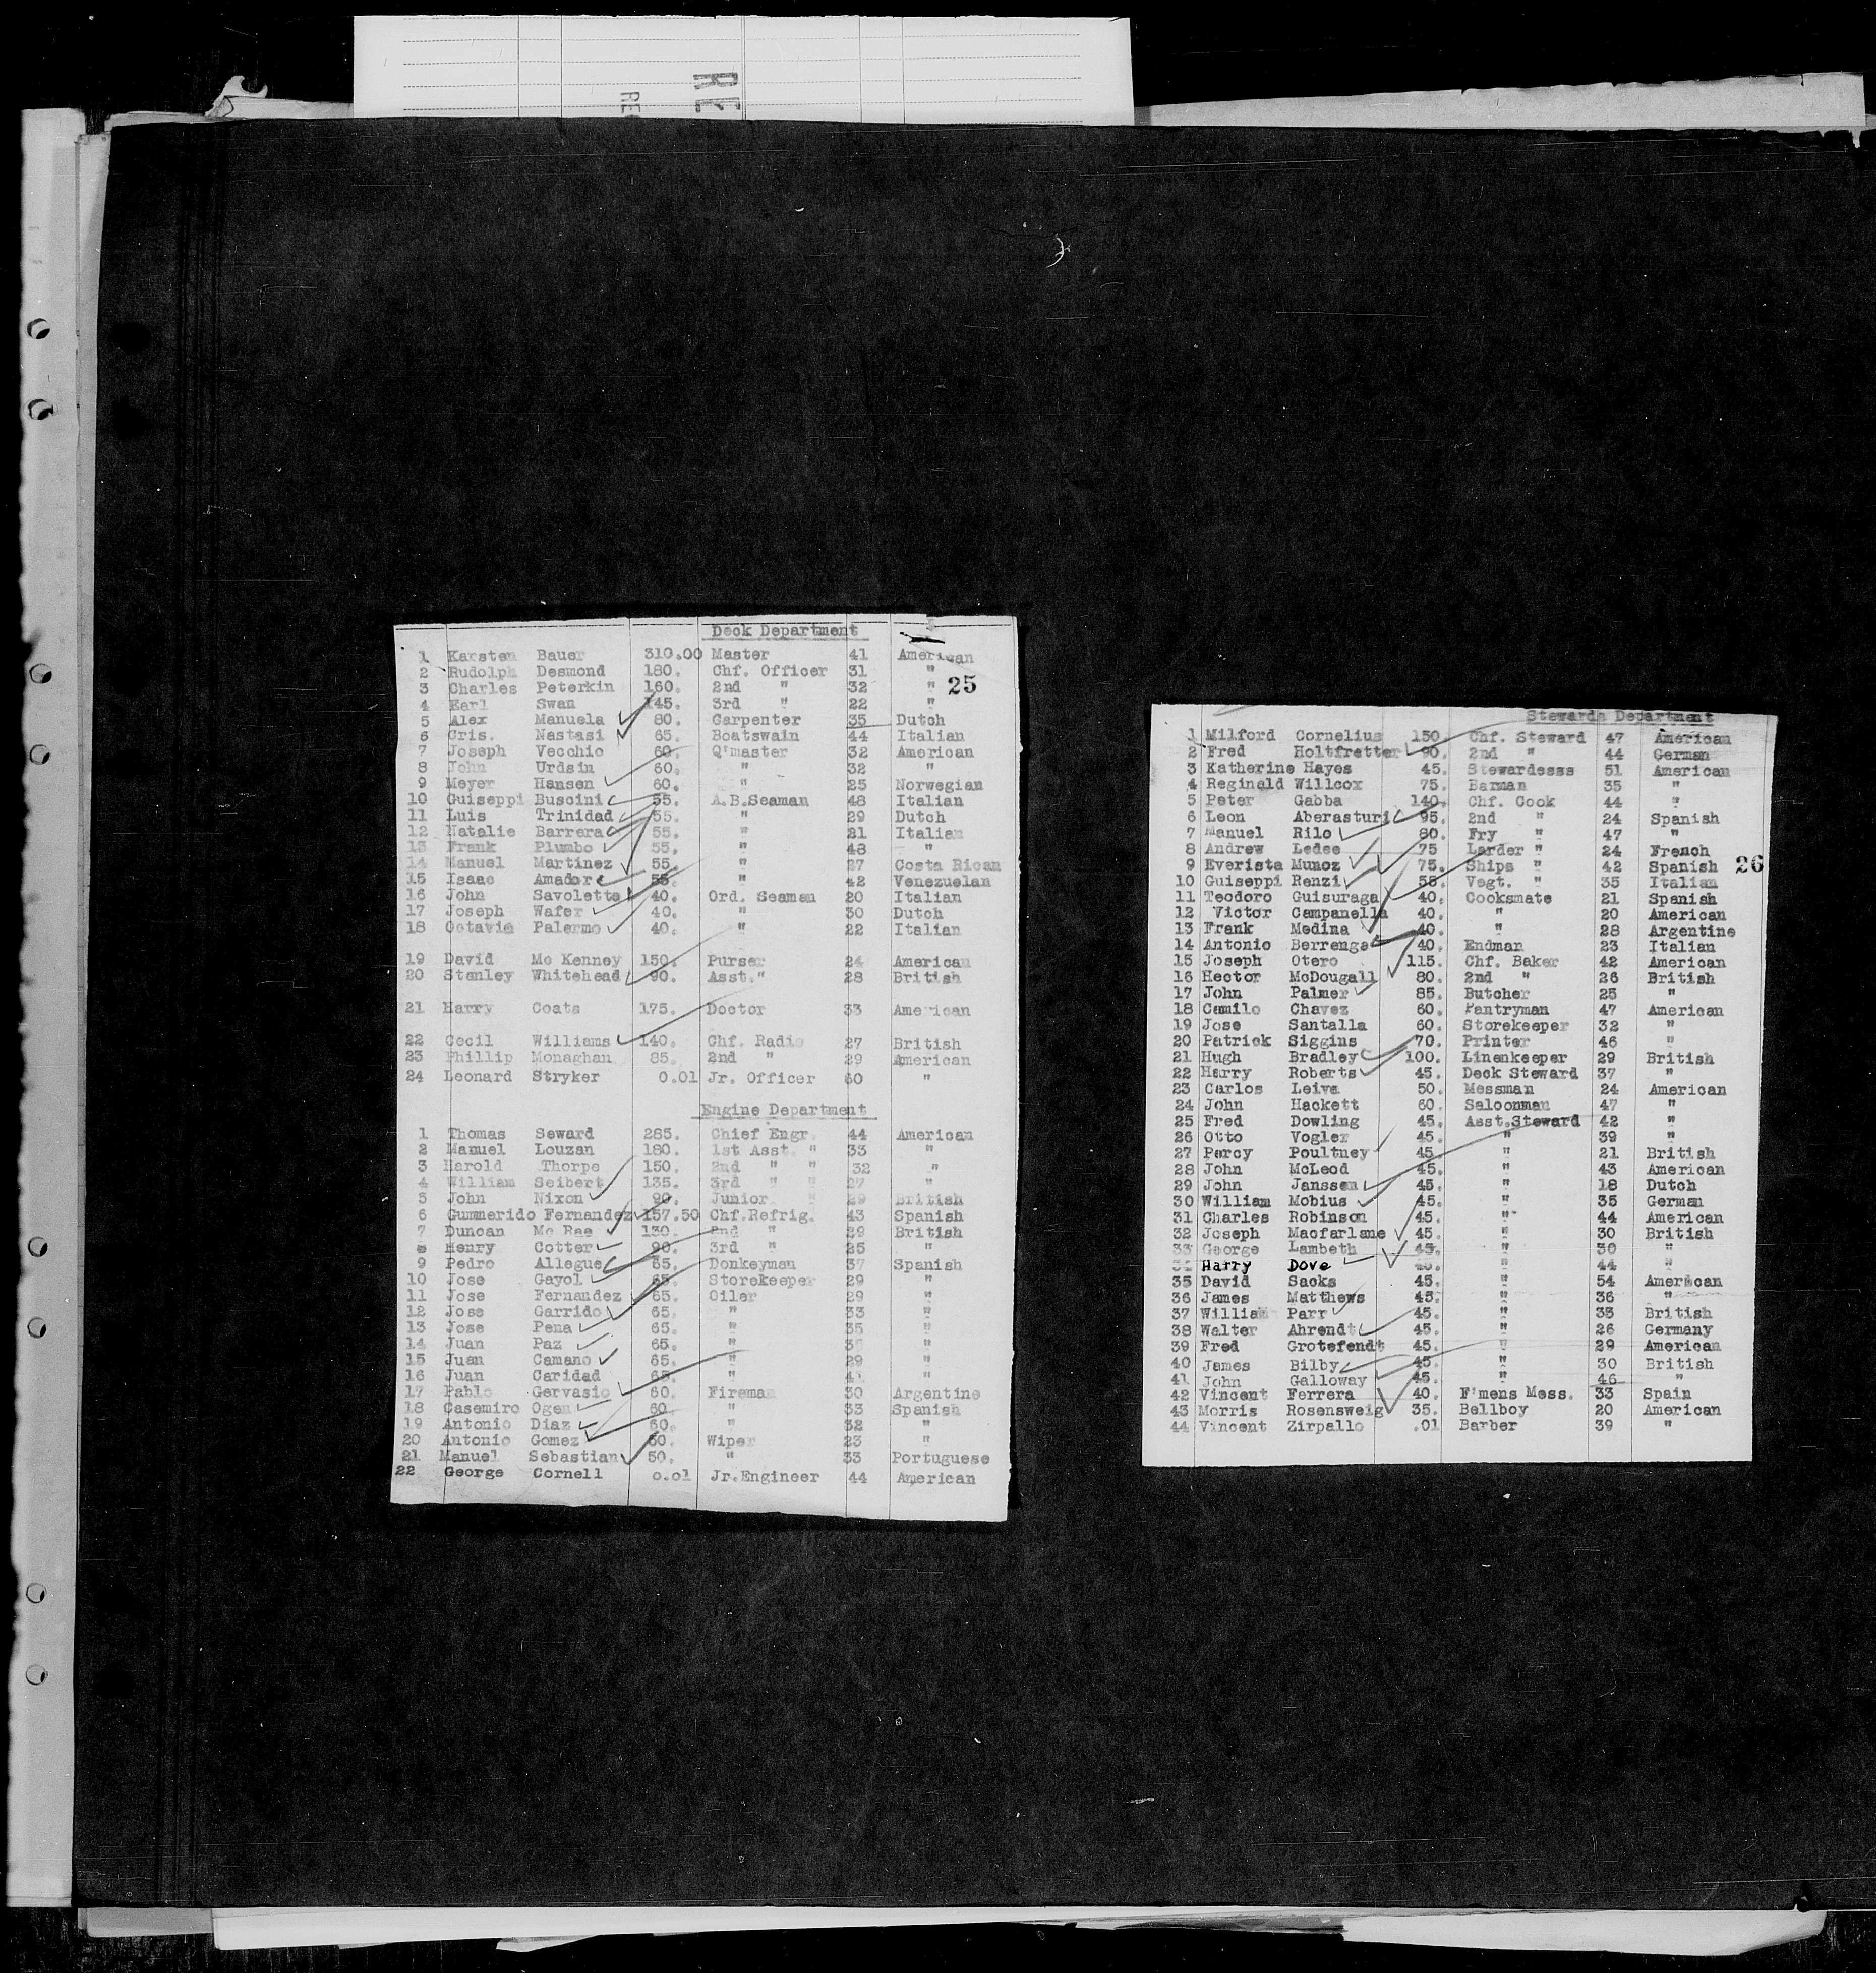 RE
RE
Deck Department
1 Karsten Bauer 310.00 Master 41 American
2 Rudolph Desmond 180. Chf. Officer 31 "
3 Charles Peterkin 160. 2nd " 32 " 25
4 Earl Swan 145. 3rd " 22 "
5 Alex Manuela 80. Carpenter 35 Dutch
6 Cris. Nastasi 65. Boatswain 44 Italian
7 Joseph Vecchio 60. Q'master 32 American
8 John Urdsin 60. " 32 "
9 Meyer Hansen 60. " 25 Norwegian
10 Guiseppi Buscini 55. A.B.Seaman 48 Italian
11 Luis Trinidad 55. " 29 Dutch
12 Natalie Barrera 55. " 21 Italian
13 Frank Plumbo 55. " 48 "
14 Manuel Martinez 55. " 27 Costa Rican
15 Isaac Amador 55. " 42 Venezuelan
16 John Savolette 40. Ord. Seaman 20 Italian
17 Joseph Wafer 40. " 30 Dutch
18 Octavia Palermo 40. " 22 Italian
19 David Mc Kenney 150. Purser 24 American
20 Stanley Whitehead 90. Asst." 28 British
21 Harry Coats 175. Doctor 33 American
22 Cecil Williams 140. Chf. Radio 27 British
23 Phillip Monaghan 85. 2nd " 29 American
24 Leonard Stryker 0.01 Jr. Officer 60 "
Engine Department
1 Thomas Seward 285. Chief Engr. 44 American
2 Manuel Louzan 180. 1st Asst. " 33 "
3 Harold Thorpe 150. 2nd " " 32 "
4 William Seibert 135. 3rd " " 27 "
5 John Nixon 90. Junior " 29 British
6 Gummerido Fernandez 157.50 Chf.Refrig. 43 Spanish
7 Duncan Mc Rae 130. 2nd " 29 British
Henry Cotter 90. 3rd " 25 "
9 Pedro Allegue 65. Donkeyman 37 Spanish
10 Jose Gayol 65. Storekeeper 29 "
11 Jose Fernandez 65. Oiler 29 "
12 Jose Garrido 65. " 33 "
13 Jose Pena 65. " 35 "
14 Juan Paz 65. " "
15 Juan Camano 65. " 29 "
16 Juan Caridad 65. " "
17 Pablo Gervasio 60. Fireman 30 Argentine
18 Casemiro Ogen 60. " 33 Spanish
19 Antonio Diaz 60. " 32 "
20 Antonio Gomez 50. Wiper 23 "
21 Manuel Sebastian 50. " 33 Portuguese
22 George Cornell 0.01 Jr.Engineer 44 American
Stewards Department
1 Milford Cornelius 150. Chf. Steward 47 American
2 Fred Holtfretter 90. 2nd " 44 German
3 Katherine Hayes 45. Stewardesss 51 American
4 Reginald Willcox 75. Barman 35 "
5 Peter Gabba 140. Chf. Cook 44 "
6 Leon Aberasturi 95. 2nd " 24 Spanish
7 Manuel Rilo 80. Fry " 47 "
8 Andrew Ledee 75 Larder " 24 French
9 Everista Munoz 75. Ships " 42 Spanish 26
10 Guiseppi Renzi 55. Vegt. " 35 Italian
11 Teodoro Guisuraga 40. Cooksmate 21 Spanish
12 Victor Campanella 40. " 20 American
13 Frank Medina 40. " 28 Argentine
14 Antonio Berrenga 40. Endman 23 Italian
15 Joseph Otero 115. Chf. Baker 42 American
16 Hector McDougall 80. 2nd " 26 British
17 John Palmer 85. Butcher 25 "
18 Camilo Chavez 60. Pantryman 47 American
19 Jose Santalla 60. Storekeeper 32 "
20 Patrick Siggins 70. Printer 46 "
21 Hugh Bradley 100. Linenkeeper 29 British
22 Harry Roberts 45. Deck Steward 37 "
23 Carlos Leiva 50. Messman 24 American
24 John Hackett 60. Saloonman 47 "
25 Fred Dowling 45. Asst.Steward 42 "
26 Otto Vogler 45. " 39 "
27 Percy Poultney 45. " 21 British
28 John McLeod 45. " 43 American
29 John Janssen 45. " 18 Dutch
30 William Mobius 45. " 35 German
31 Charles Robinson 45. " 44 American
32 Joseph Macfarlane 45. " 30 British
33 George Lambeth 45. " 30 "
Harry Dove " 44 "
35 David Sacks 45. " 54 American
36 James Matthews 45. " 36 "
37 William Parr 45. " 33 British
38 Walter Ahrendt 45. " 26 Germany
39 Fred Grotefendt 45. " 29 American
40 James Bilby 45. " 30 British
41 John Galloway 45. " 46 "
42 Vincent Ferrera 40. F'mens Mess. 33 Spain
43 Morris Rosensweig 35. Bellboy 20 American
44 Vincent Zirpallo .01 Barber 39 "